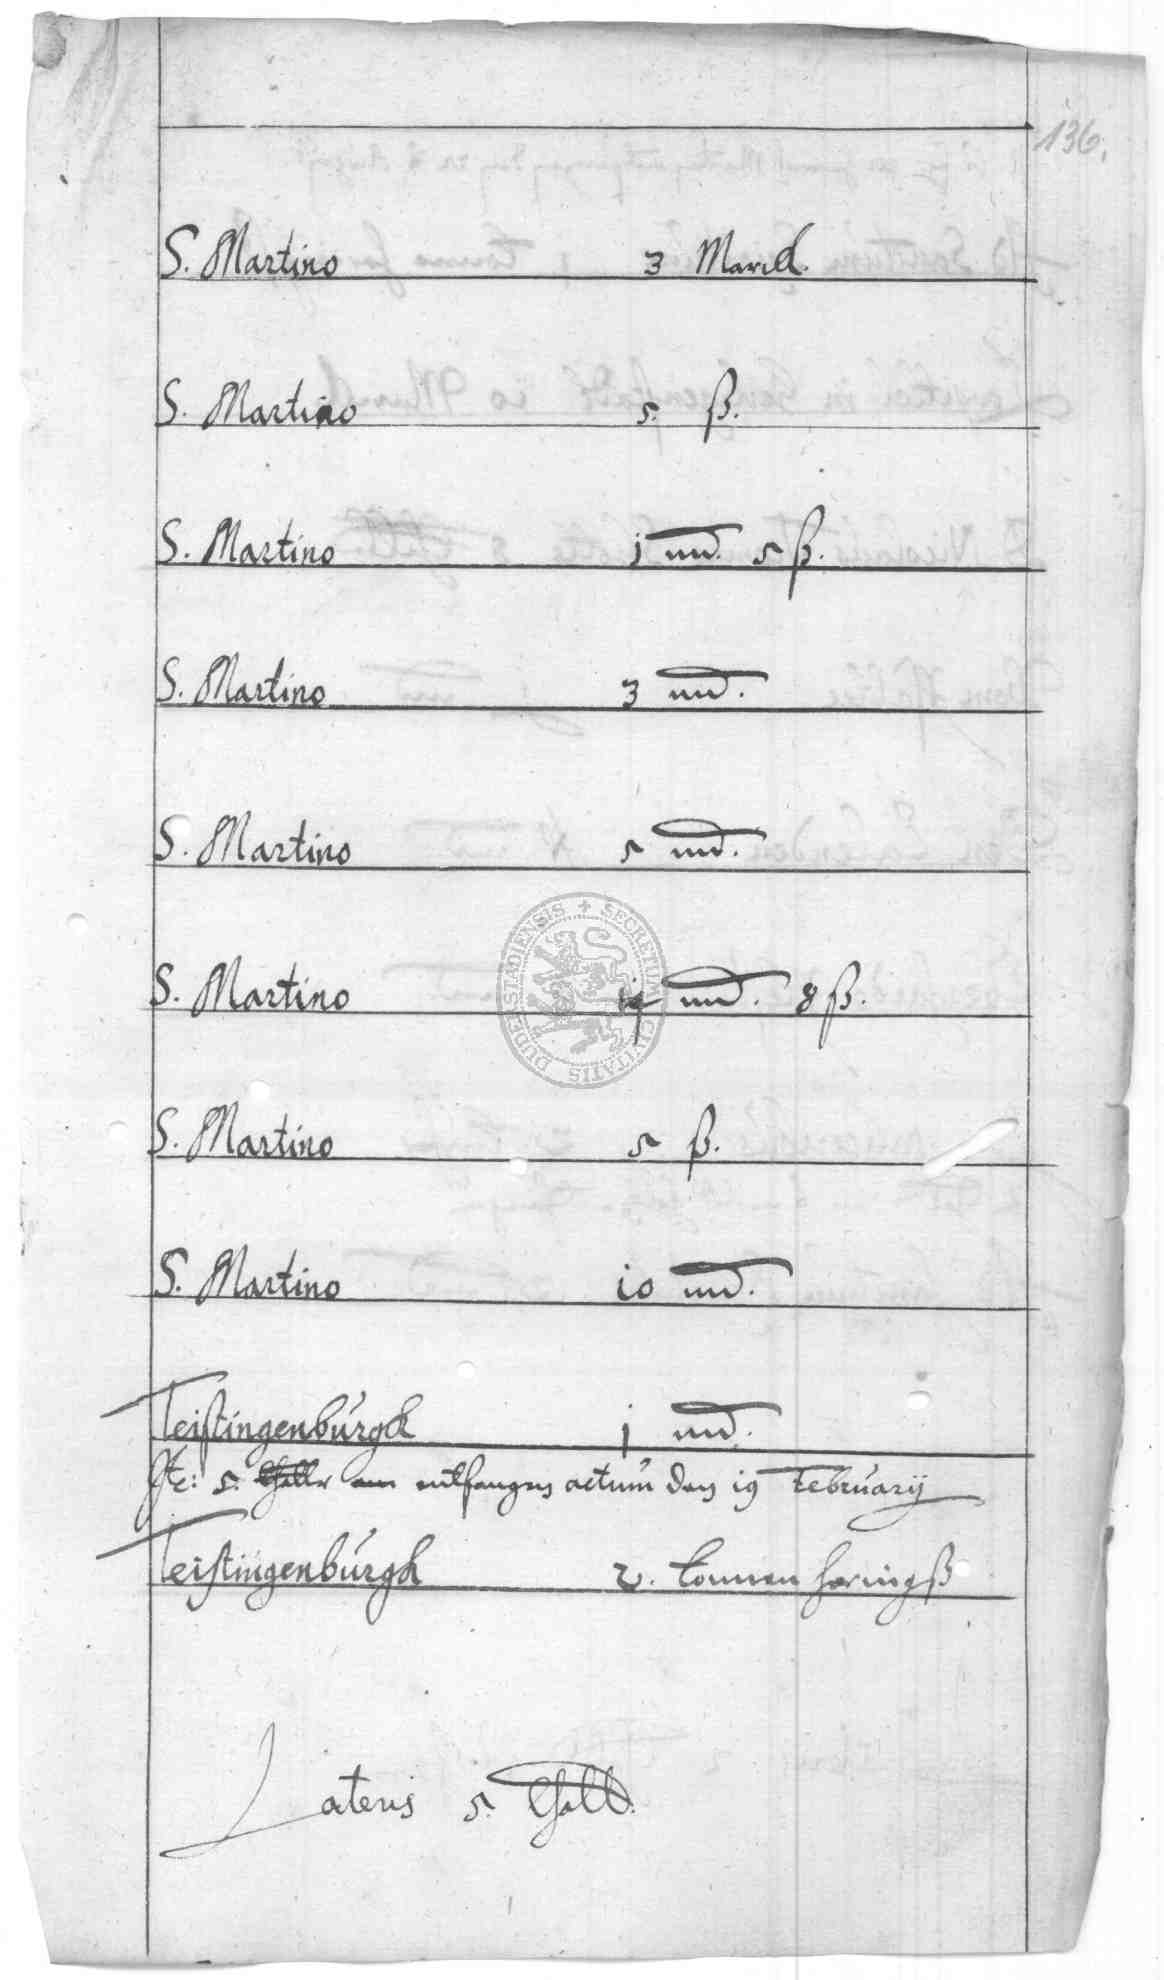 136.
S. Martino 3 Marck.
S. Martino 5. ß.
S. Martino j md. 5 ß.
S. Martino 3 md.
S. Martino 5 md.
S. Martino md. 8 ß.
SECRETUM CIVITATIS DUDERSTADIENSIS
S. Martino 5 ß.
S. Martino io md.
Teistingenburgk j md.
Ite: 5. thaller entfangen actum den i9 February
Teistingenburgk 2. tonnen heringß
Lateris 5. thall.